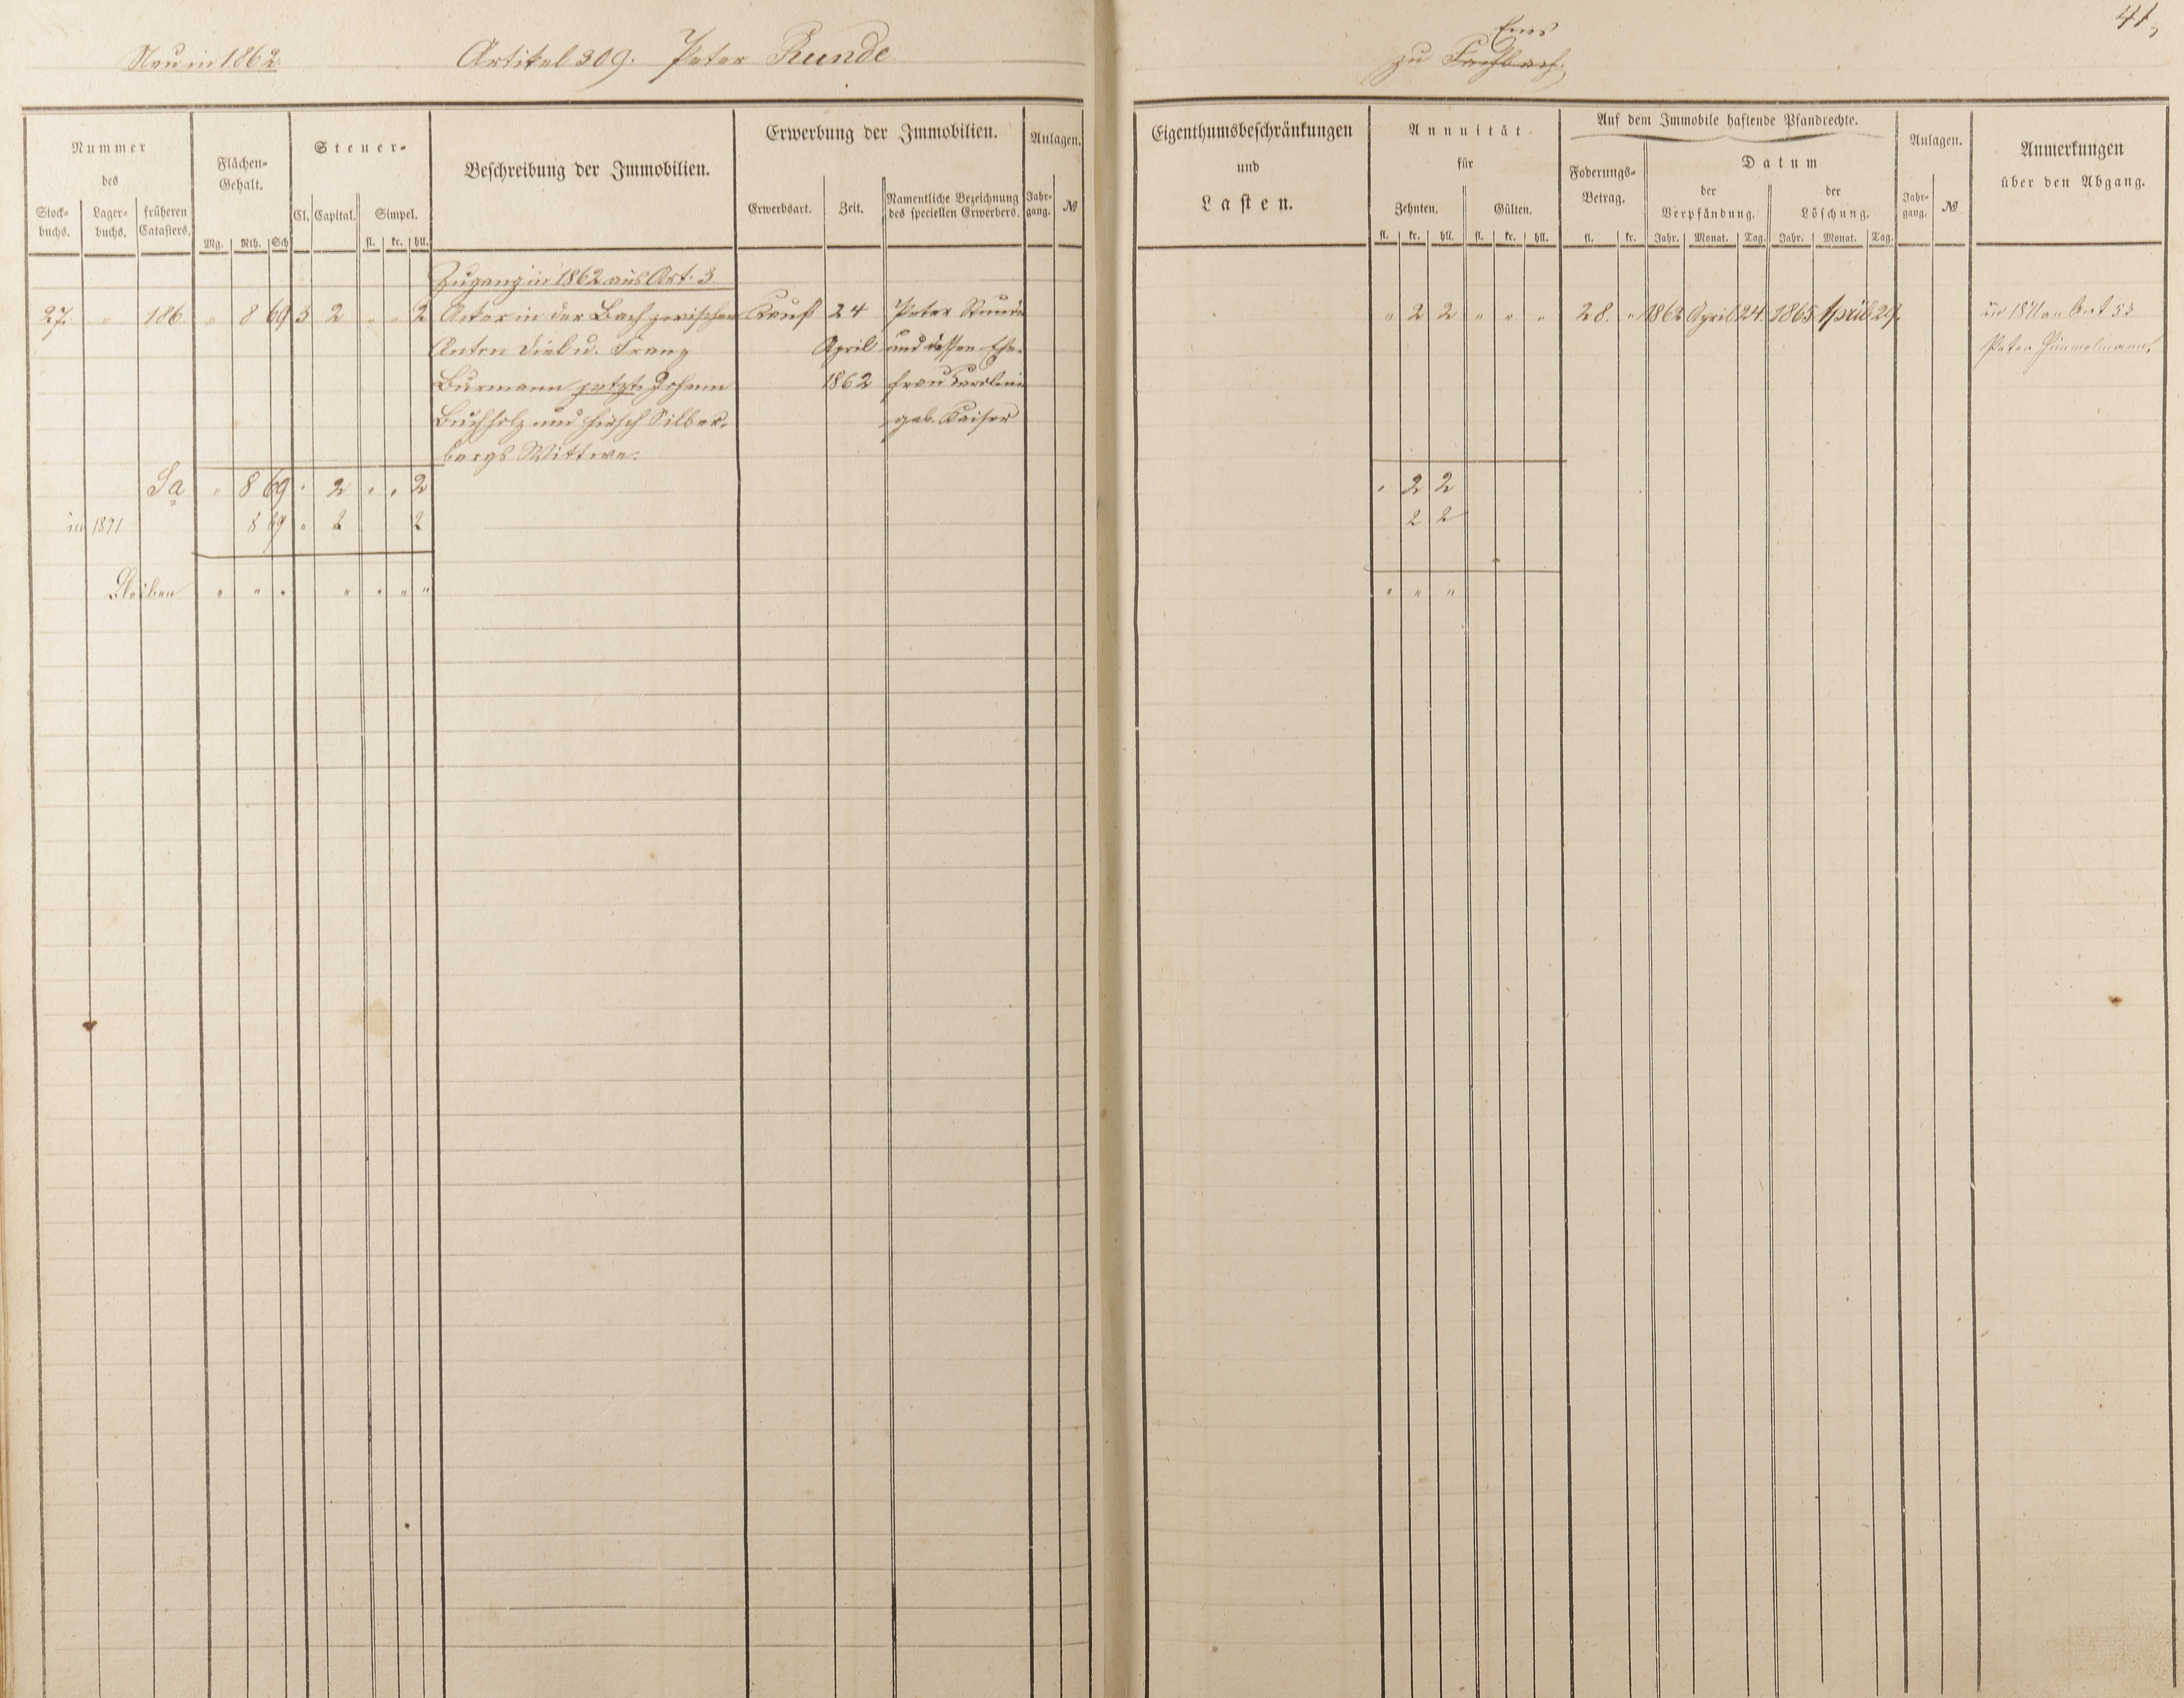 41,
Neu in 1862.
Artikel 309. Peter Runde
Ems
zu Fachbach.
Nummer
des
Stock-
buchs.
Lager-
buchs.
früheren
Catasters.
Flächen-
Gehalt.
Mg. Rth. Sch
Steuer-
Cl. Capital. Simpel.
fl. kr. hll.
Beschreibung der Immobilien.
Erwerbung der Immobilien.
Erwerbsart. Zeit.
Namentliche Bezeichnung
des speciellen Erwerbers.
Anlagen.
Jahr-
gang. №
Eigenthumsbeschränkungen
und
Lasten.
Annuität
für
Zehnten. Gülten.
fl. kr. hll. fl. kr. hll.
Auf dem Immobile haftende Pfandrechte.
Foderungs-
Betrag.
fl. kr.
Datum
der
Verpfändung.
der
Löschung.
Jahr. Monat. Tag. Jahr. Monat. Tag.
Anlagen.
Jahr-
gang. №
Anmerkungen
über den Abgang.
Zugang in 1862 aus Art. 3
27. " 186 " 8 69 3 2 " " 2 Acker in der Bach zwischen Kauf 24 Peter Runde " 2 2 " " " 28. " 1862 April 24. 1865 April 29. in 1871 an Art 53
Anton Diel u. Franz April und dessen Ehe- Peter Himmelmann.
Burmann jetzt Johann 1862 frau Caroline
Buchholz und Hirsch Silber- geb. Kaiser
bergs Wittwe.
Sa " 8 69 " 2 " " 2 " 2 2
in 1871 8 69 " 2 2 2 2
Bleiben " " " " " " " " " "